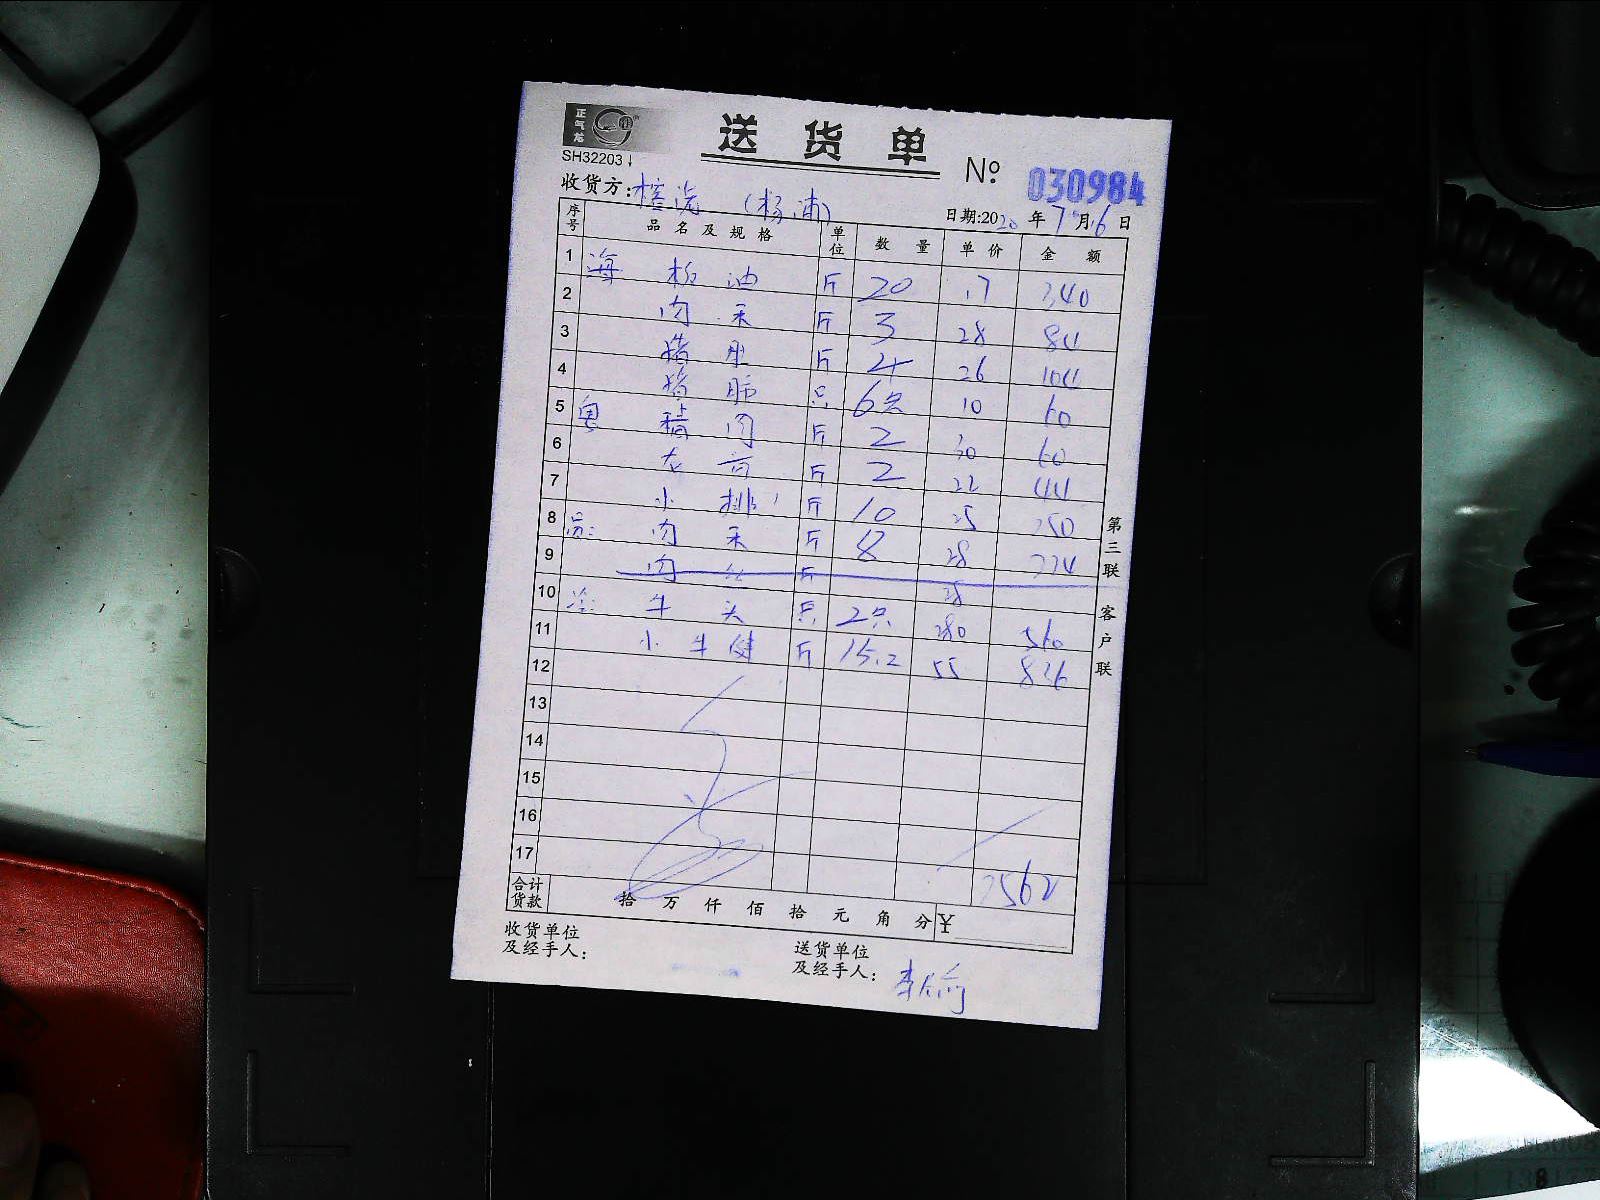 正气龙
送货单
SH32203
№ 030984
收货方: (杨浦)
日期:2020年7月6日
序号 品名及规格 单位 数量 单价 金额
1 海 板油 斤 20 17 340
2 肉 斤 3 28 84
3 猪肚 斤 4 26 104
4 猪肺 只 6只 10 60
5 粤 精肉 斤 2 30 60
6 斤 2 22 44
7 小排 斤 10 25 250
8 肉 斤 8 28 224
9 肉 斤 28
10 冷: 牛头 只 2只 280 560
11 小牛健 斤 15.2 55 836
12
13
14
15
16
17
2562
合计货款 拾 万 仟 佰 拾 元 角 分 ¥
收货单位及经手人:
送货单位及经手人: 李
第三联 客户联